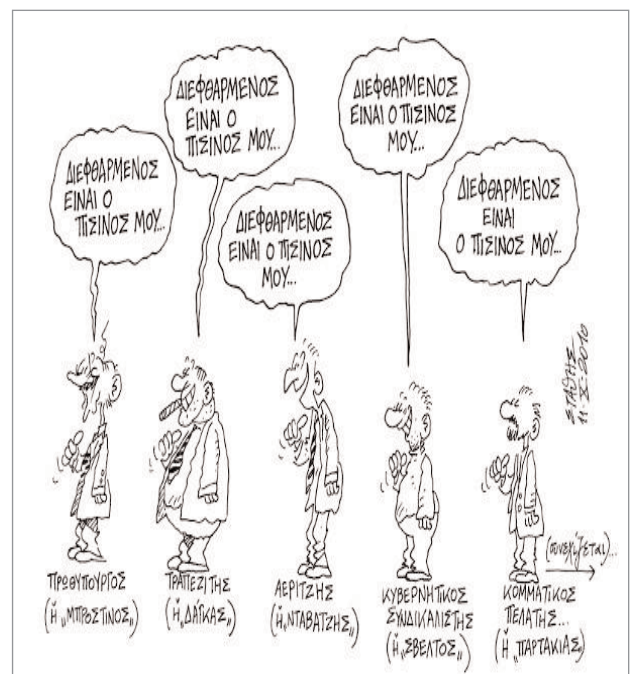 ΔΙΕΦΘΑΡΜΕΝΟΣ
ΕΙΝΑΙ Ο
ΠΙΣΙΝΟΣ ΜΟΥ...
ΔΙΕΦΘΑΡΜΕΝΟΣ
ΕΙΝΑΙ Ο
ΠΙΣΙΝΟΣ
ΜΟΥ...
ΔΙΕΦΘΑΡΜΕΝΟΣ
ΕΙΝΑΙ Ο ΠΙΣΙΝΟΣ
ΜΟΥ...
ΔΙΕΦΘΑΡΜΕΝΟΣ
ΕΙΝΑΙ Ο ΠΙΣΙΝΟΣ
ΜΟΥ...
ΔΙΕΦΘΑΡΜΕΝΟΣ
ΕΙΝΑΙ
Ο ΠΙΣΙΝΟΣ ΜΟΥ...
ΣΤΑΘΗΣ
11-Χ-2010
(συνεχίζεται)...
ΠΡΩΘΥΠΟΥΡΓΟΣ
(ἤ „ΜΠΡΟΣΤΙΝΟΣ„)
ΤΡΑΠΕΖΙΤΗΣ
(ἤ „ΔΑΪΚΑΣ„)
ΑΕΡΙΤΖΗΣ
(ἤ „ΝΤΑΒΑΤΖΗΣ„)
ΚΥΒΕΡΝΗΤΙΚΟΣ
ΣΥΝΔΙΚΑΛΙΣΤΗΣ
(ἤ „ΣΒΕΛΤΟΣ„)
ΚΟΜΜΑΤΙΚΟΣ
ΠΕΛΑΤΗΣ...
(ἤ „ΠΑΡΤΑΚΙΑΣ„)